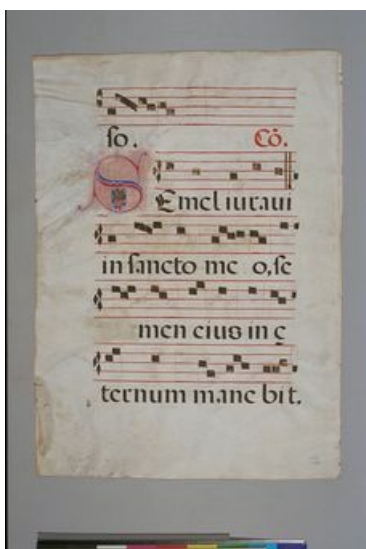 so. Cō.
Semel iuraui
in sancto me o, se
men eius in e
ternum mane bit.